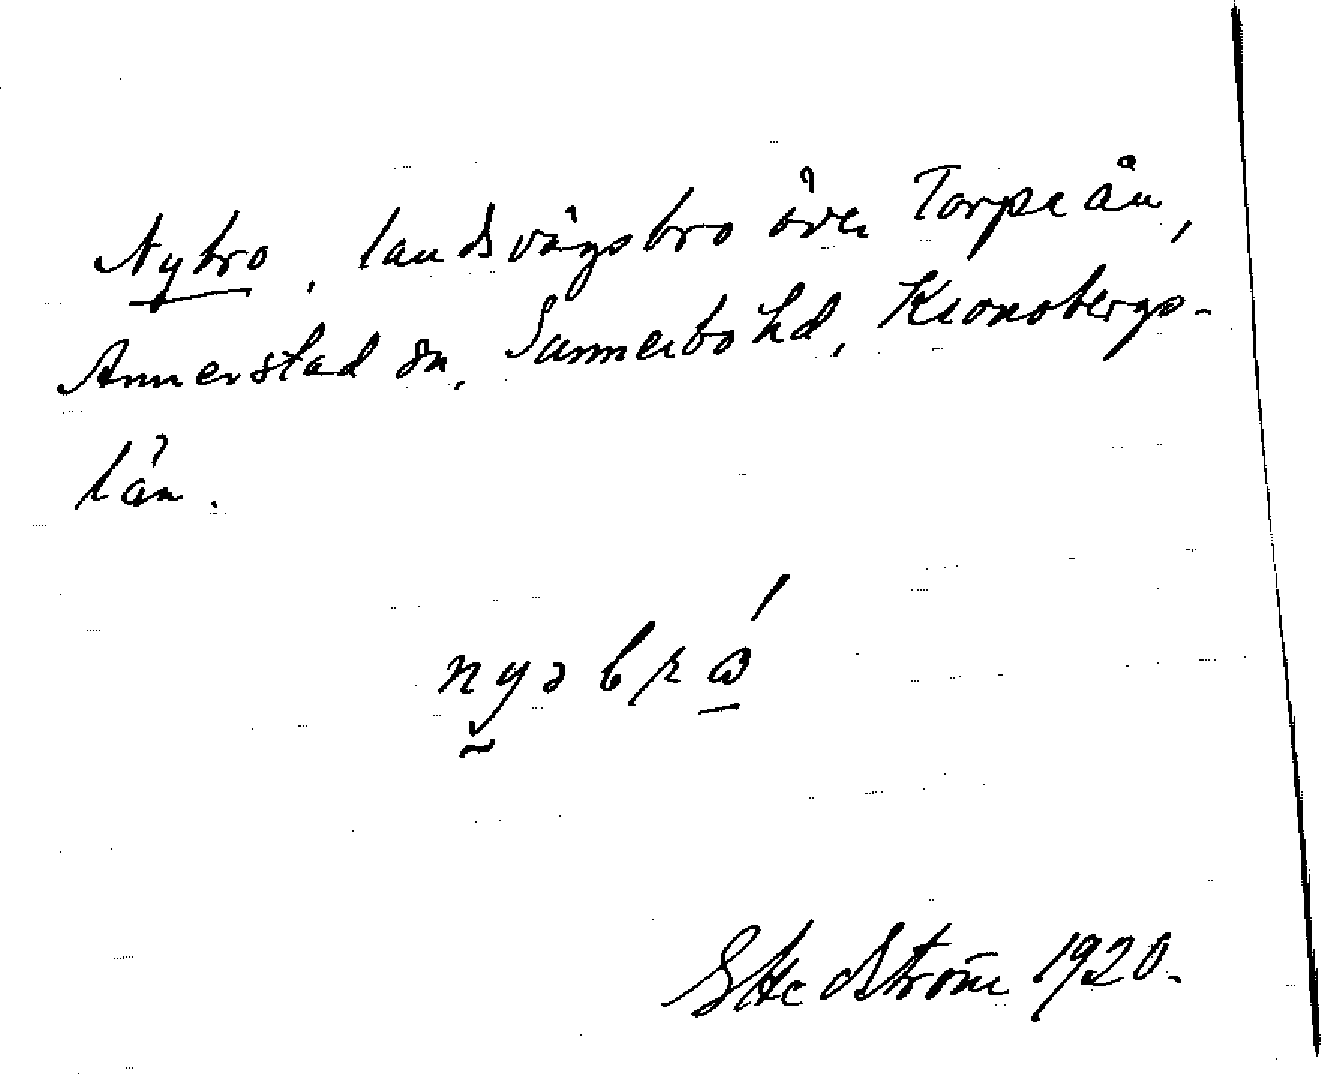 Nybro, landsvägsbro över Torpaån,
Annerstad sn, Sunnerbo hd, Kronobergs-
län.
nyəbrɷ́
G Hedström 1920.